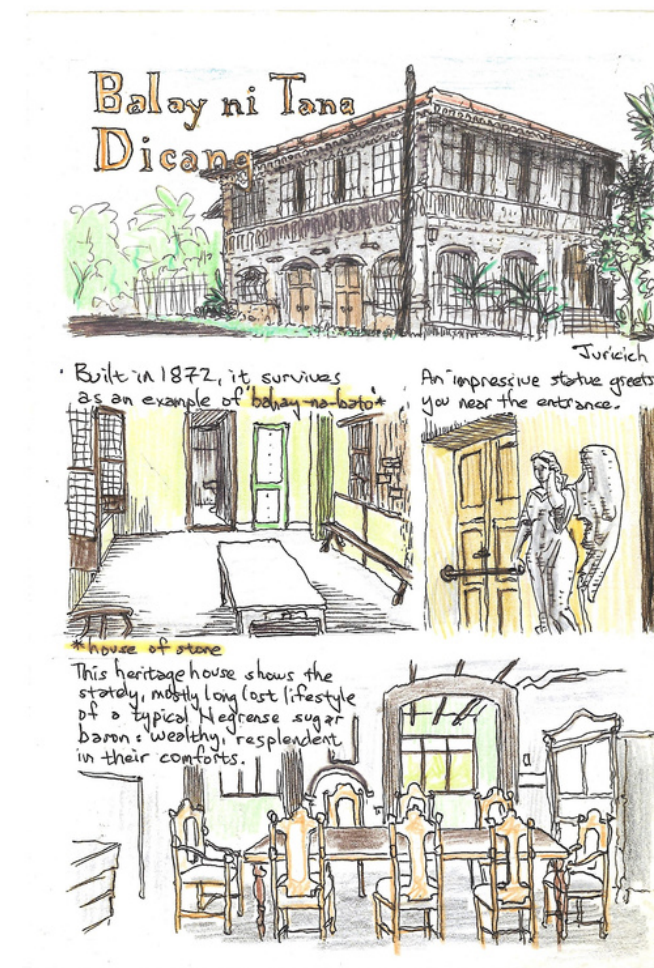 Balay ni Tana
Dicang
Juricich
Built in 1872, it survives
as an example of "bahay-na-bato"*
An impressive statue greets
you near the entrance.
*house of stone
This heritage house shows the
stately, mostly long lost lifestyle
of a typical Negrense sugar
baron: wealthy, resplendent
in their comforts.